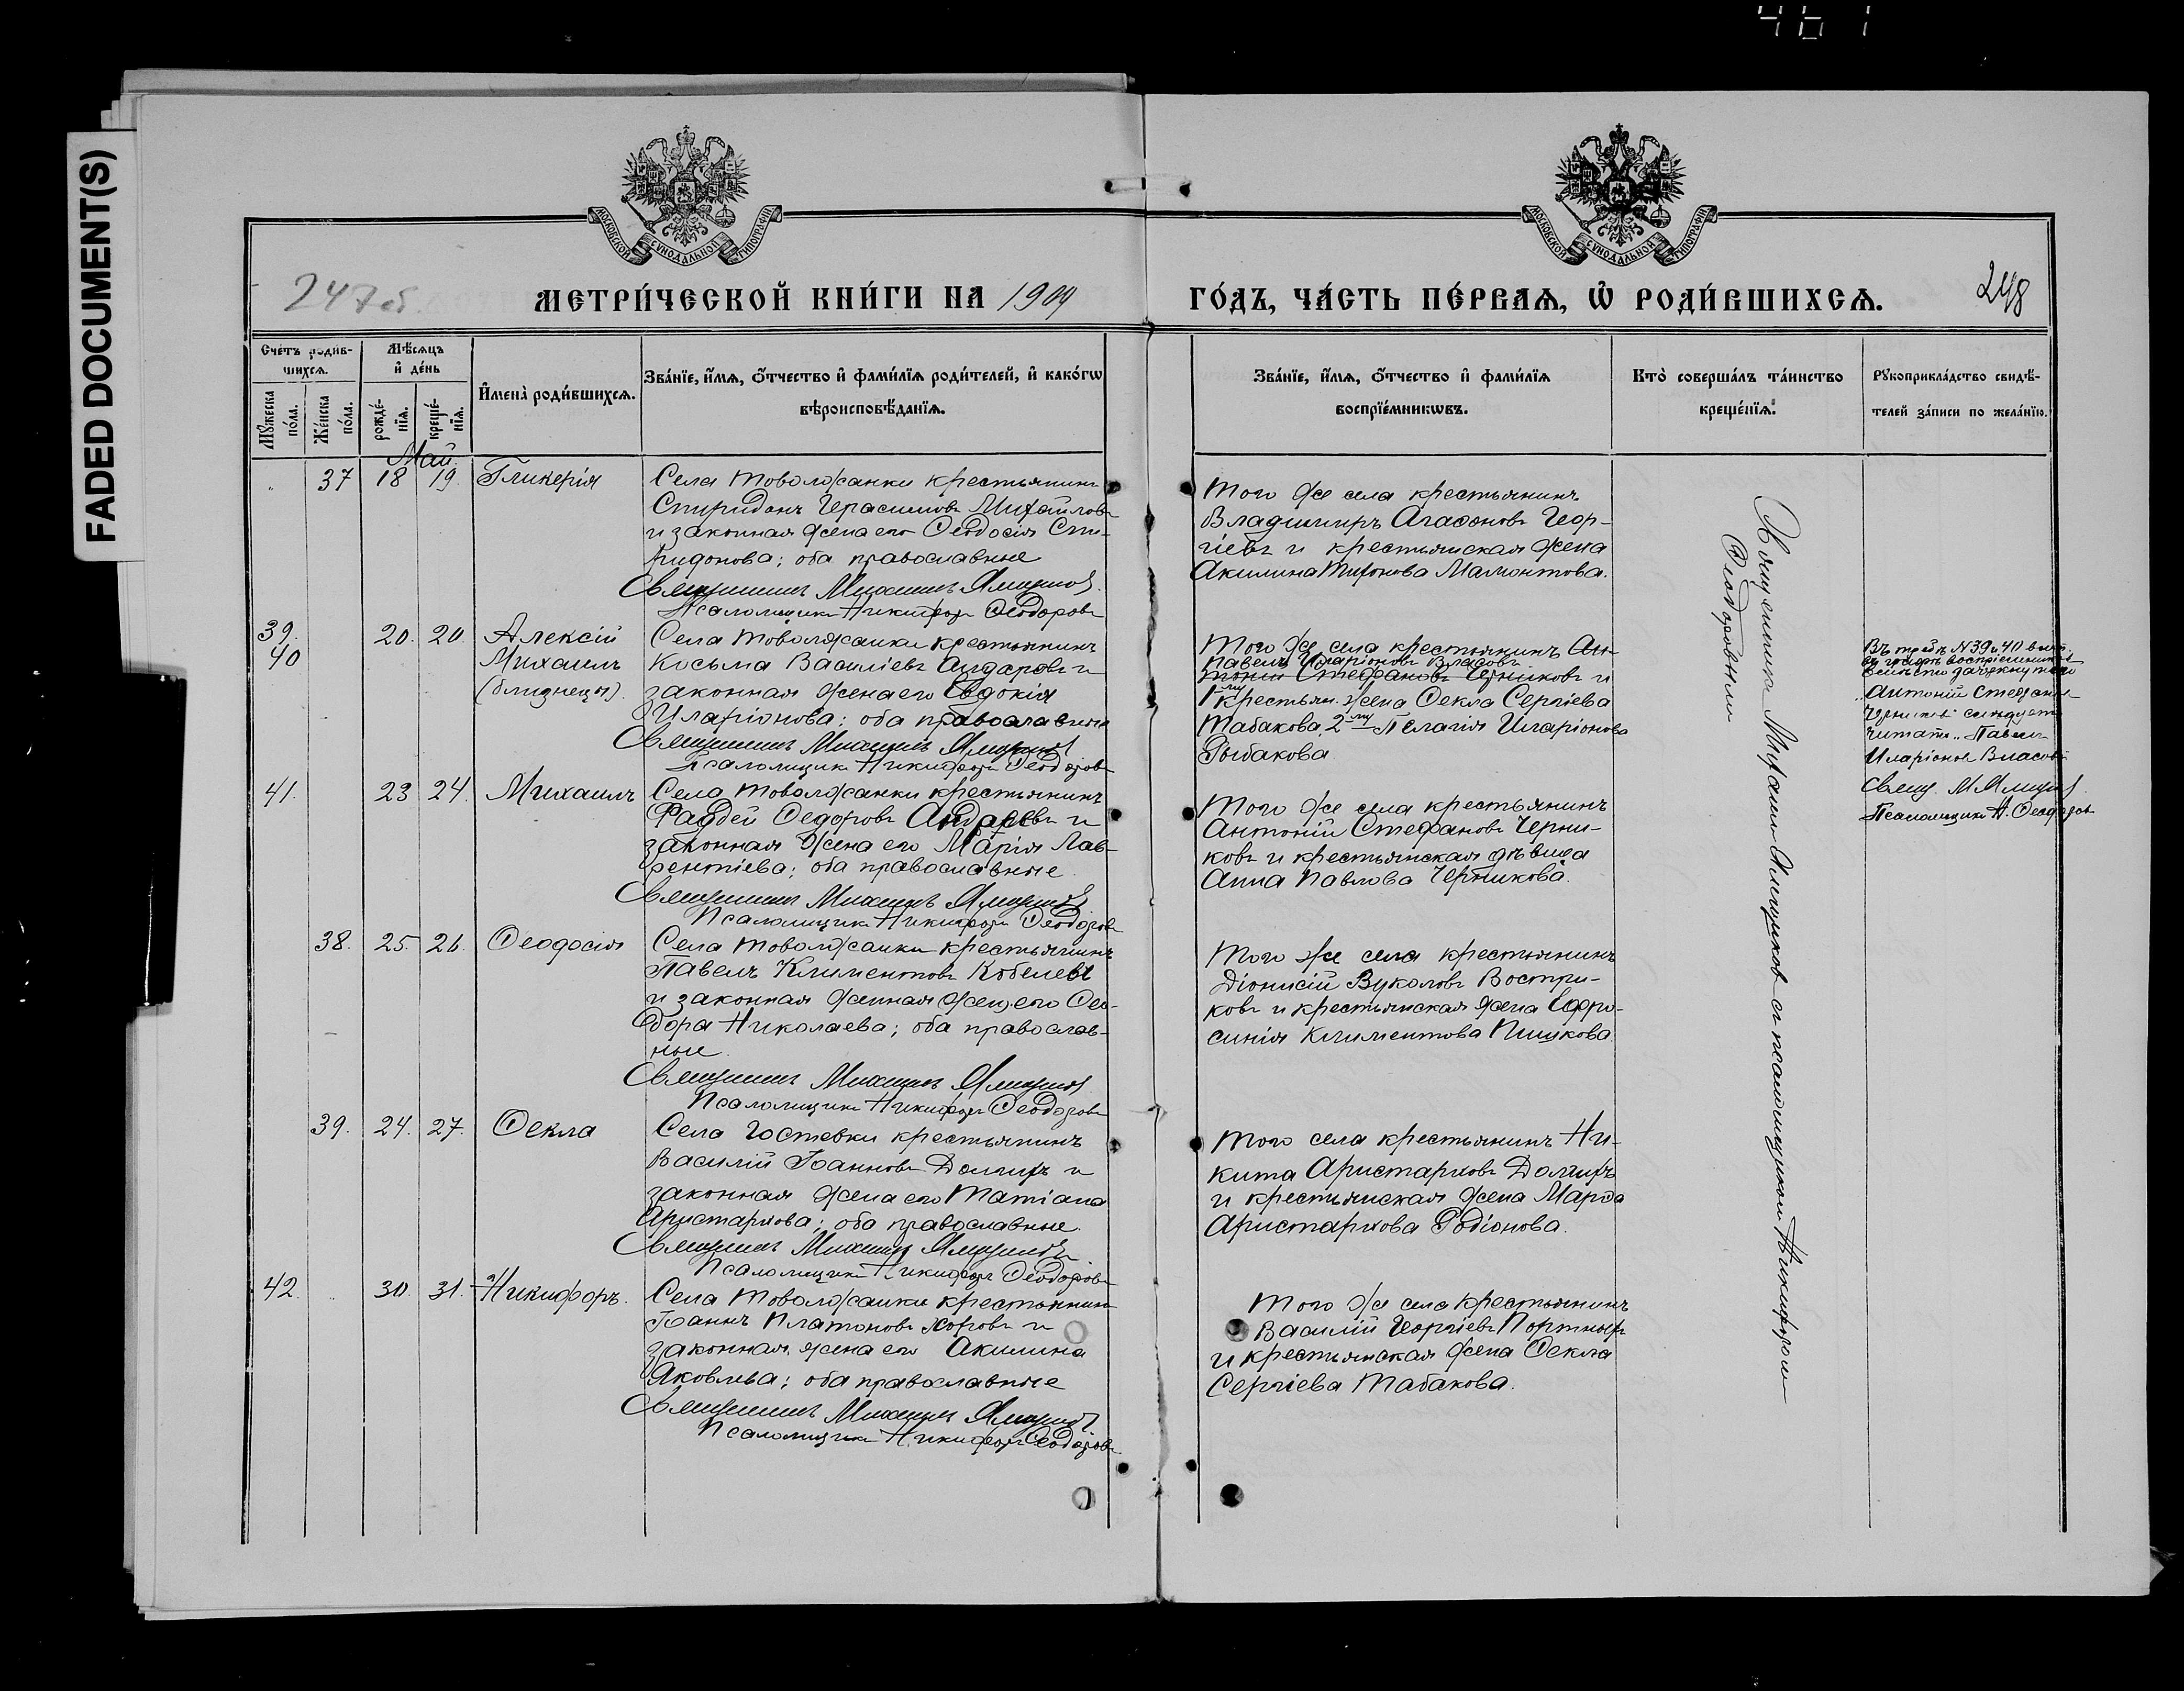 461
FADED DOCUMENT(S)
МОСКОВСКОЙ СѴНОДАЛЬНОЙ ТИПОГРАФІИ
МОСКОВСКОЙ СѴНОДАЛЬНОЙ ТИПОГРАФІИ
247 об.
МЕТРИ́ЧЕСКОЙ КНИ́ГИ НА 1909
ГО́ДЪ, ЧА́СТЬ ПЕ́РВАЯ, Ѽ РОДИ́ВШИХСЯ.
248
Сче́тъ роди́в-
шихся.
Мꙋ́жеска по́ла.
Же́нска по́ла.
Мѣ́сяцъ
и҆ де́нь
рожде́-
нїя.
креще́-
нїя.
И҆мена̀ роди́вшихся.
Зва́нїе, и҆́мя, ѻ҆́тчество и҆ фами́лїя роди́телей, и҆ како́гѡ
вѣроисповѣ́данїя.
Зва́нїе, и҆́мя, ѻ҆́тчество и҆ фами́лїя
воспрїе́мникѡвъ.
Кто̀ соверша́лъ та́инство
креще́нїя.
Рꙋкоприкла́дство свидѣ́-
телей за́писи по жела́нїю.
Май.
37 18 19 Гликерія
Села Товоложанки крестьянинъ
Спиридонъ Герасимовъ Михайловъ
и законная жена его Ѳеодосія Спи-
ридонова; оба православные
Священникъ Михаилъ Ямщиков
Псаломщикъ Никифоръ Ѳеодоровъ
Того же села крестьянинъ
Владимиръ Агаѳоновъ Геор-
гіевъ и крестьянская жена
Акилина Тихонова Мамонтова.
39.
40
20. 20. Алексій
Михаилъ
(близнецы).
Села Товоложанки крестьянинъ
Косьма Василіевъ и
законная жена его Евдокія
Иларіонова; оба православные
Священникъ Михаилъ Ямщиков
Псаломщикъ Никифоръ Ѳеодоровъ
Того же села крестьянинъ Ан-
Павелъ Иларіоновъ Власовъ
тоній Стефановъ Черниковъ и
1 крестьян. жена Ѳекла Сергіева
Табакова, 2 Пелагія Иларіонова
Рыбакова.
Въ № 39 и 40
въ графѣ воспріемниковъ
зачеркнутаго
„Антоній Стефанов
Черников следует
читать „Павелъ
Иларіонов Власовъ
Свящ. М. Ямщиков.
Псаломщикъ Н. Ѳеодоров
41. 23 24. Михаилъ
Села Товоложанки крестьянинъ
Фаддей Ѳедоровъ и
законная жена его Марія Лав-
рентіева; оба православные.
Священникъ Михаилъ Ямщиков
Псаломщикъ Никифоръ Ѳеодоровъ
Того же села крестьянинъ
Антоній Стефановъ Черни-
ковъ и крестьянская дѣвица
Анна Павлова Черникова.
38. 25. 26. Ѳеодосія
Села Товоложанки крестьянинъ
Павелъ Климентовъ Кобелевъ
и законная жена его Ѳео-
дора Николаева; оба православ-
ные.
Священникъ Михаилъ Ямщиков
Псаломщикъ Никифоръ Ѳеодоровъ
Того же села крестьянинъ
Діонисій Вуколовъ Востри-
ковъ и крестьянская жена Евфро-
синія Климентова Пишкова.
39. 24. 27. Ѳекла
Села Гостевки крестьянинъ
Василій Іоанновъ Долгихъ и
законная жена его Татіана
Аристархова; оба православные.
Священникъ Михаилъ Ямщиков
Псаломщикъ Никифоръ Ѳеодоровъ
Того села крестьянинъ Ни-
кита Аристарховъ Долгихъ
и крестьянская жена Марѳа
Аристархова Родіонова.
42. 30. 31. Никифоръ.
Села Товоложанки крестьянинъ
Іоаннъ Платоновъ и
законная жена его Акилина
Яковлева; оба православные
Священникъ Михаилъ Ямщиков
Псаломщикъ Никифоръ Ѳеодоровъ
Того же села крестьянинъ
Василій Георгіевъ Портныхъ
и крестьянская жена Ѳекла
Сергіева Табакова.
Священникъ Михаилъ Ямщиковъ съ псаломщикомъ Никифоромъ
Ѳеодоровымъ